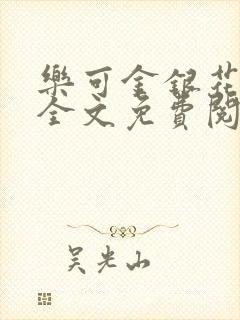 樂可金銀花
全文免費閱
吴光山